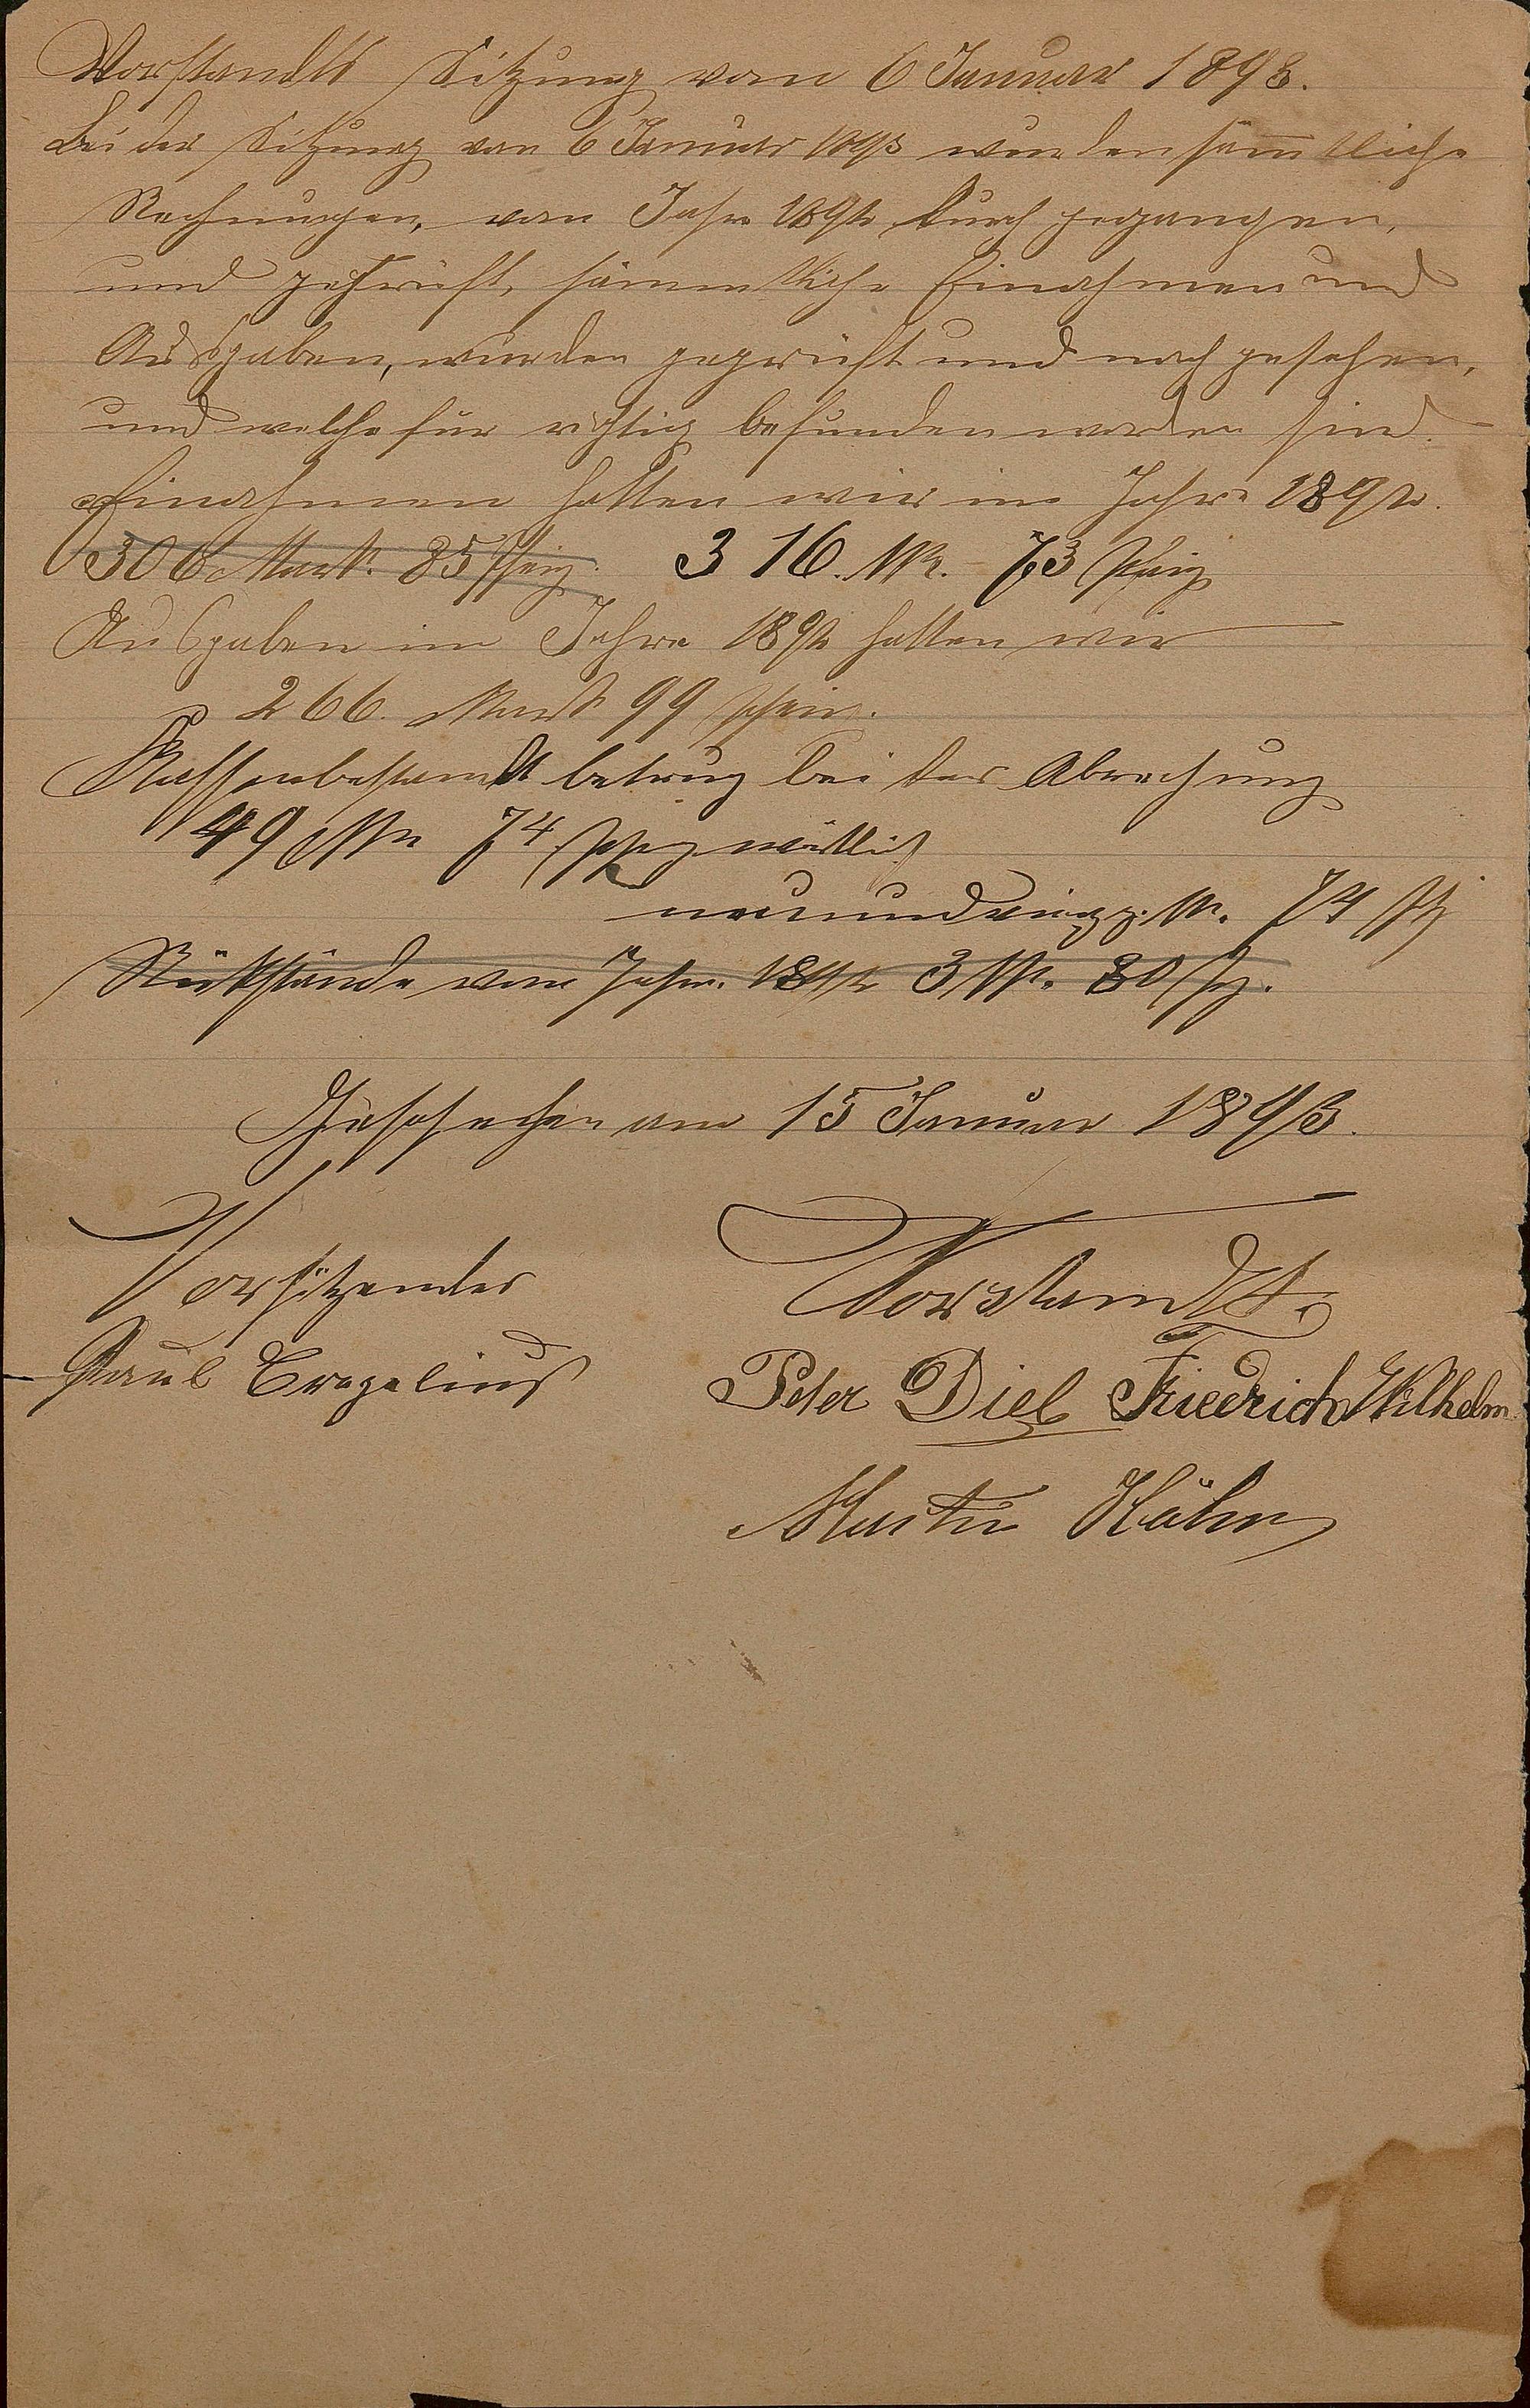 Vorstandts Sitzung vom 6 Januar 1893.
Bei der Sitzung vom 6 Januar 1893 wurden säm̄tliche
Rechnungen, vom Jahre 1892 durch gegangen,
und geprüft, sämmtliche Einahmen und
Ausgaben, wurden geprüft und nach gesehen,
und welche für richtig befunden worden sind.
Einahmen hatten wir im Jahre 1892.
306 Mark. 85 Pfeng. 316. M. 73 Pfeng
Ausgaben im Jahre 1892 hatten wir
266. Mark 99 Pfeng.
Kassenbestandt betrug bei der Abrechung
49 M 74 Pfg wörtlich
neunundvierzig. M. 74 Pf
Rükstände vom Jahre 1892 3 M. 80 Pf.
Geschehen am 15 Januar 1893.
Vorsitzender Vorstandt.
Paul Peter Diel Friedrich Wilhelm
Martin Höhn